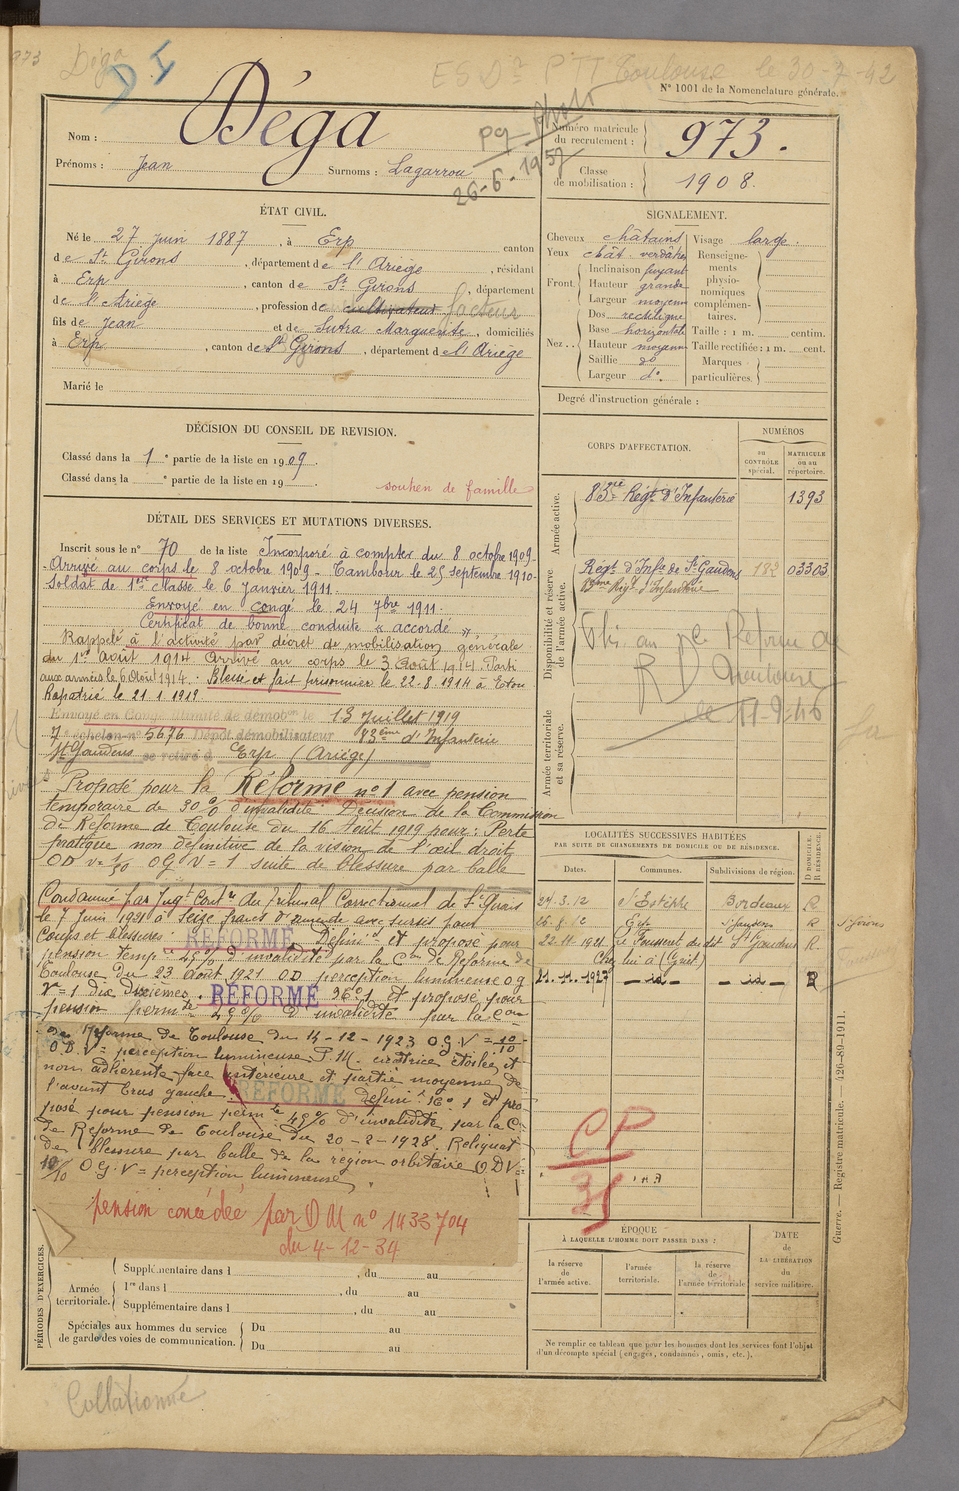 973 Déga
DI
ESDn PTT Toulouse le 30-7-42
N° 1001 de la Nomenclature générale.
Nom : Déga
pq photo
26-6-1957
Prénoms : Jean Surnoms : Lagarrou
Numéro matricule du recrutement : 973.
Classe de mobilisation : 1908.
ÉTAT CIVIL.
Né le 27 juin 1887, à Erp canton
de St Girons, département de l'Ariège, résidant
à Erp, canton de St Girons, département
de l'Ariège, profession de cultivateur facteur
fils de Jean et de Sutra Marguerite, domiciliés
à Erp, canton de St Girons, département de l'Ariège
Marié le
SIGNALEMENT.
Cheveux châtains
Yeux chât. verdâtre
Front. Inclinaison fuyant
Hauteur grande
Largeur moyen
Nez.. Dos rectiligne
Base horizontal
Hauteur moyenne
Saillie do
Largeur do.
Visage large.
Renseignements physionomiques complémentaires.
Taille : 1 m. centim.
Taille rectifiée : 1 m. cent.
Marques particulières.
Degré d'instruction générale :
DÉCISION DU CONSEIL DE REVISION.
Classé dans la 1e partie de la liste en 1909.
Classé dans la e partie de la liste en 19
soutien de famille
DÉTAIL DES SERVICES ET MUTATIONS DIVERSES.
Inscrit sous le n° 70 de la liste Incorporé à compter du 8 octobre 1909.
Arrivé au corps le 8 octobre 1909 - Tambour le 25 septembre 1910-
Soldat de 1re classe le 6 Janvier 1911.
Envoyé en congé le 24 7bre 1911.
Certificat de bonne conduite « accordé »
Rappelé à l'activité par décret de mobilisation générale
du 1er Août 1914 Arrivé au corps le 3 Août 1914 Parti
aux armées le 6 Août 1914. Blessé et fait prisonnier le 22.8.1914 à
Rapatrié le 21.1.1919
Envoyé en Congé illimité de démobon le 13 Juillet 1919
7e échelon n° 5676 Dépôt démobilisateur 83ème d'Infanterie
St Gaudens se retire à Erp (Ariège)
Proposé pour la Réforme n° 1 avec pension
temporaire de 30% d'invalidité Décision de la Commission
de Réforme de Toulouse du 16 Août 1919 pour : Perte
pratique non définitive de la vision de l'œil droit
OD V= 1/50 OG V = 1 suite de blessure par balle
Condamné par Jugt Contre du Tribunal Correctionnel de St Girons
le 7 Juin 1921 à Seize francs d'amende avec sursis pour
Coups et blessures. RÉFORMÉ Défini et proposé pour
pension tempre 45% d'invalidité par la Con de Réforme de
Toulouse du 23 Août 1921 OD perception lumineuse OG
V = 1 dix dixièmes. RÉFORMÉ n° 1 et proposé pour
pension permte 45% d'invalidité par la Con
de Réforme de Toulouse du 14-12-1923 O G V = 10/10
O.D. V = perception lumineuse P.14. cicatrice étoilée et
non adhérente face intérieure et partie moyenne de
l'avant bras gauche RÉFORMÉ définit n° 1 et pro
posé pour pension permte 45% d'invalidité par la C.
de Réforme de Toulouse du 20-2-1928. Reliquat
de blessure par balle de la région orbitaire O D V=
10/10 O G. V = perception lumineuse
pension concédée par D M n° 1433704
du 4-12-34
CORPS D'AFFECTATION.
NUMÉROS
au CONTRÔLE spécial.
MATRICULE ou au répertoire.
Armée active.
83me Régt d'Infanterie 1393
Disponibilité et réserve de l'armée active.
Régt d'Infie de St Gaudens 182 03303
Régt d'Infanterie
Armée territoriale et sa réserve.
Réforme
RD Toulouse
le 11-9-46
LOCALITÉS SUCCESSIVES HABITÉES
PAR SUITE DE CHANGEMENTS DE DOMICILE OU DE RÉSIDENCE.
Dates. Communes. Subdivisions de région. D DOMICILE. R RÉSIDENCE.
24.3.12 St Estèphe Bordeaux R
26.8.12 St Gaudens R St Girons
22.11.1921 Le Fousseret St Gaudens R
Chez lui à
21.11.1927 — id — — id — R
CP
35
ÉPOQUE
À LAQUELLE L'HOMME DOIT PASSER DANS :
la réserve de l'armée active.
l'armée territoriale.
la réserve de l'armée territoriale
DATE de LA LIBÉRATION du service militaire.
Ne remplir ce tableau que pour les hommes dont les services font l'objet
d'un décompte spécial (engagés, condamnés, omis, etc.).
PÉRIODES D'EXERCICES.
Supplémentaire dans l , du au
Armée territoriale. 1re dans l , du au
Supplémentaire dans l , du au
Spéciales aux hommes du service de garde des voies de communication. Du au
Du au
Guerre. — Registre matricule. — 426-89-1911.
Collationné